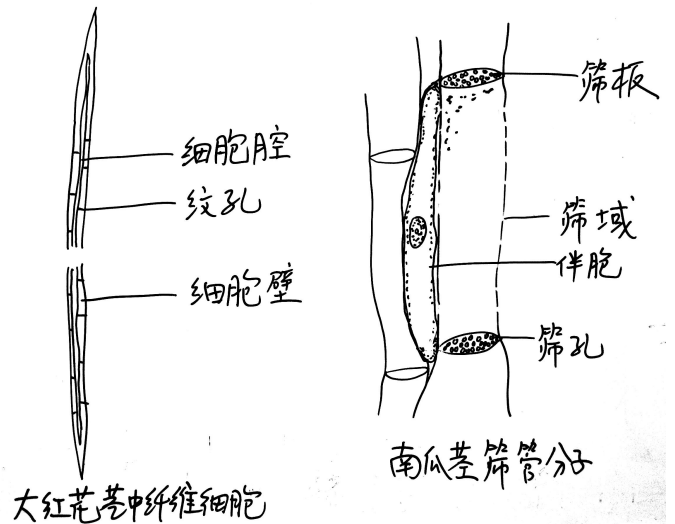 细胞腔
纹孔
细胞壁
大红花茎中纤维细胞
筛板
筛域
伴胞
筛孔
南瓜茎筛管分子